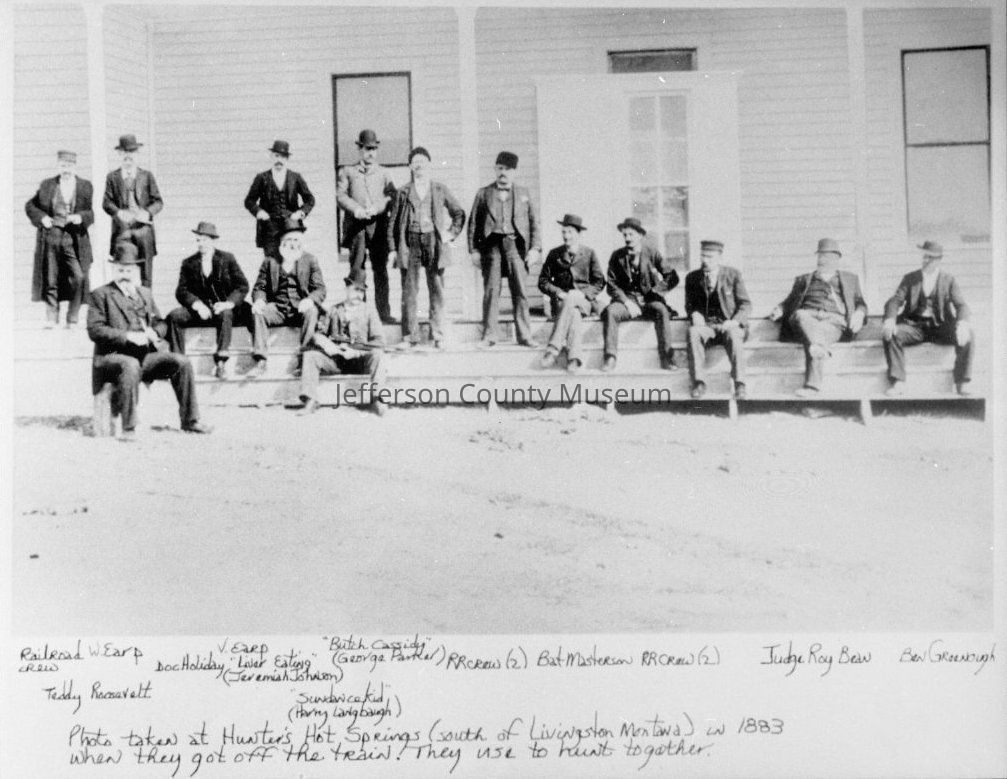 Jefferson County Museum
Railroad W. Earp V. Earp "Butch Cassidy"
crew Doc Holiday "Liver Eating" (George Parker) RR crew (2) Bat Masterson RR Crew (2) Judge Roy Bean Ben Greenough
(Jeremiah Johnson)
Teddy Roosevelt "Sundance Kid"
(Harry Langbaugh)
Photo taken at Hunter's Hot Springs (south of Livingston Montana) in 1883
when they got off the train! They use to hunt together.